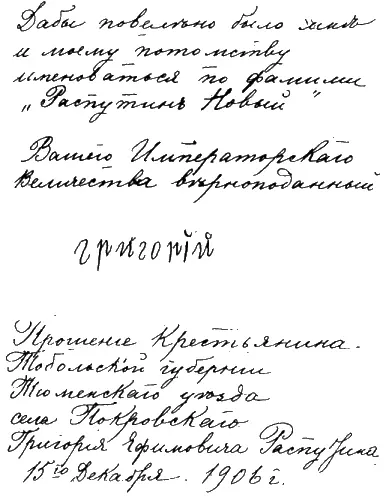 Дабы повелѣно было мнѣ
и моему потомству
именоваться по фамилии
„Распутинъ Новый"
Вашего Императорскаго
Величества вѣрноподанный
григорій
Прошение Крестьянина.
Тобольской губернии
Тюменскаго уѣзда
села Покровскаго
Григория Ефимовича Распутина
15го Декабря. 1906 г.